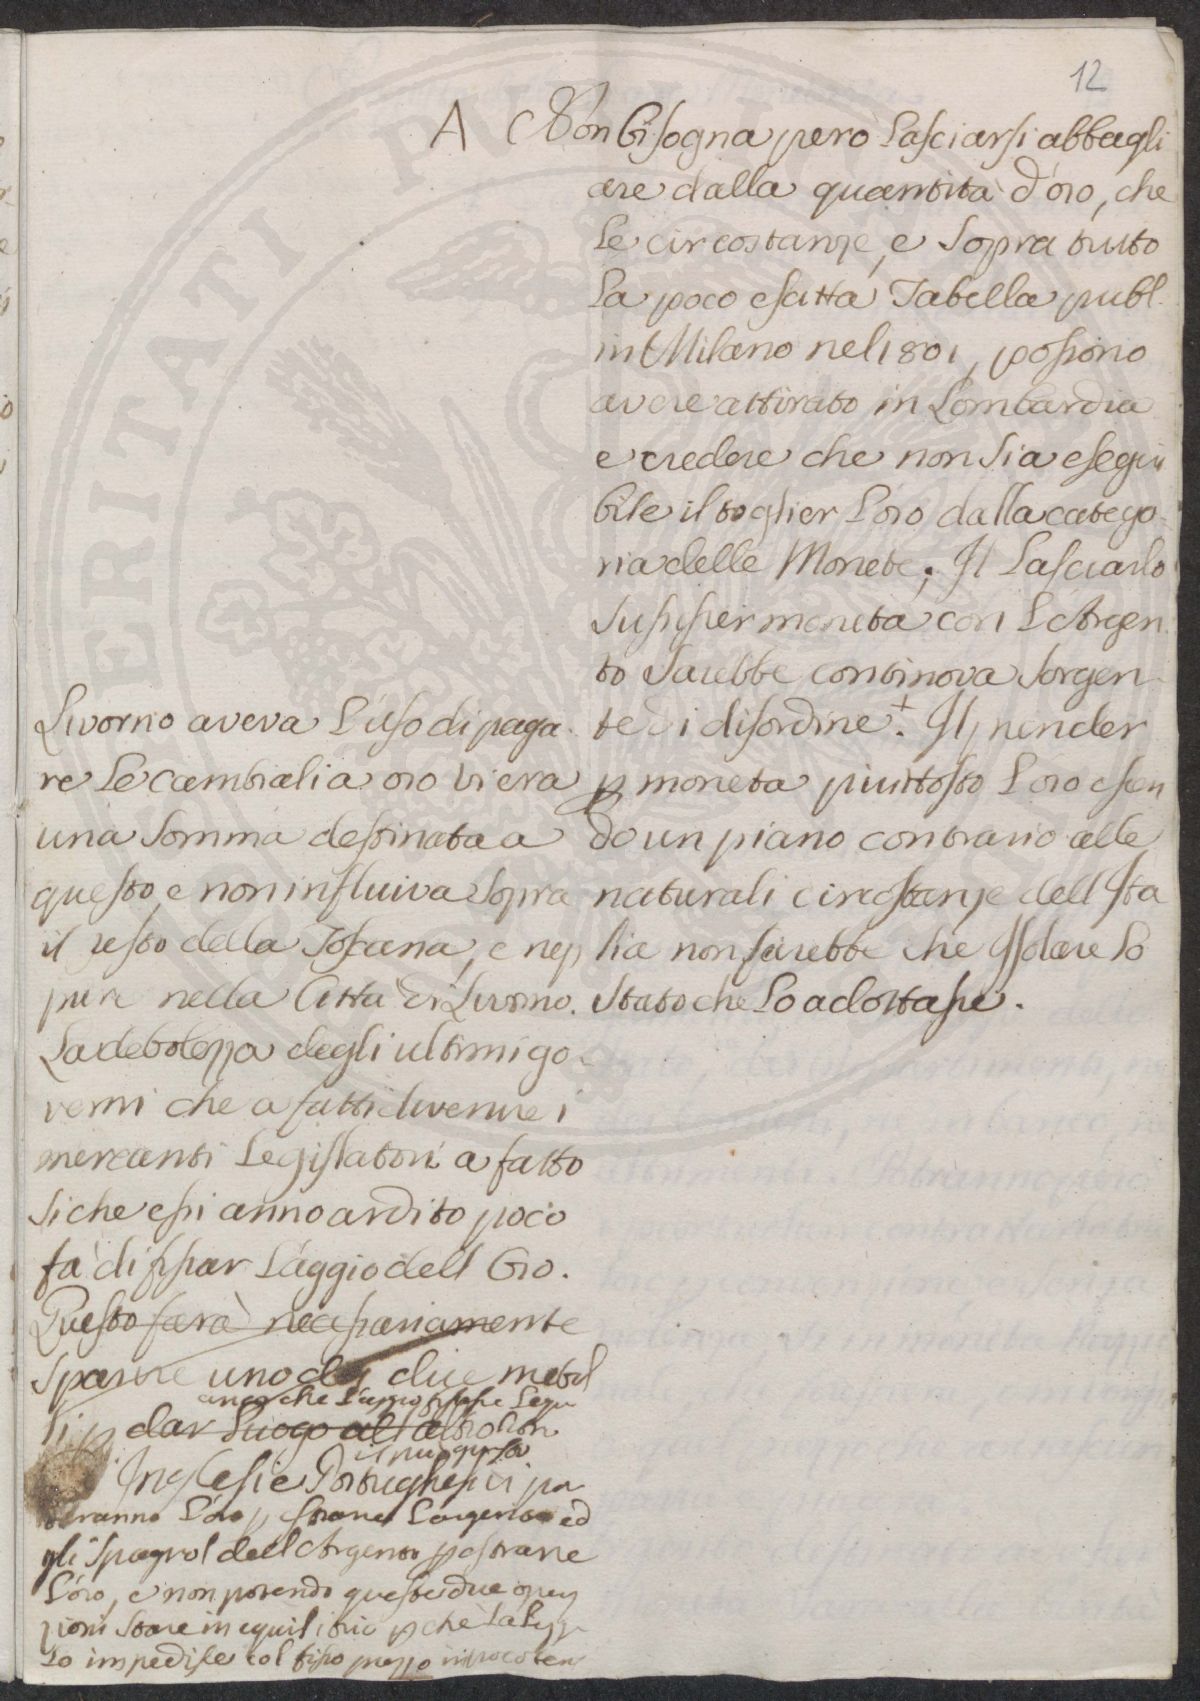 12
A Non bisogna pero lasciarsi abbagli
are dalla quantità d'oro, che
le circostanze, e sopra tutto
la poco esatta Tabella publ.
in Milano nel 1801, possono
avere attirato in Lombardia
e credere che non sia esegui
bile il toglier l'oro dalla catego
ria delle Monete; Il lasciarlo
sussister moneta con l'Argen
to sarebbe continova sorgen
te di disordine.+ Il prender
p moneta piuttosto l'oro essen
do un piano contrario alle
naturali circostanze dell Ita
lia non farebbe che Isolare lo
stato che lo adottasse.
Livorno aveva l'uso di paga
re le cambiali a oro vi era
una somma destinata a
questo, e non influiva sopra
il resto della Toscana, e nep
pure nella Città di Livorno.
La debolezza degli ultimi go
verni che a fatti divenire i
mercanti legislatori a fatto
si che essi anno ardito poco
fà di fissar l'aggio dell Oro.
Questo farà necessariamente
sparire uno dei due metal
anco che l'aggio fosse
li p dar luogo all altro
Inglesi e Portughesi
teranno l'oro p estrarre l'argento ed
gli Spagnol dell Argento p estrarre
l'oro, e non potendo queste due opera
zioni stare in equilibrio p che la legge
lo impedisce col fisso prezzo
ERITATI